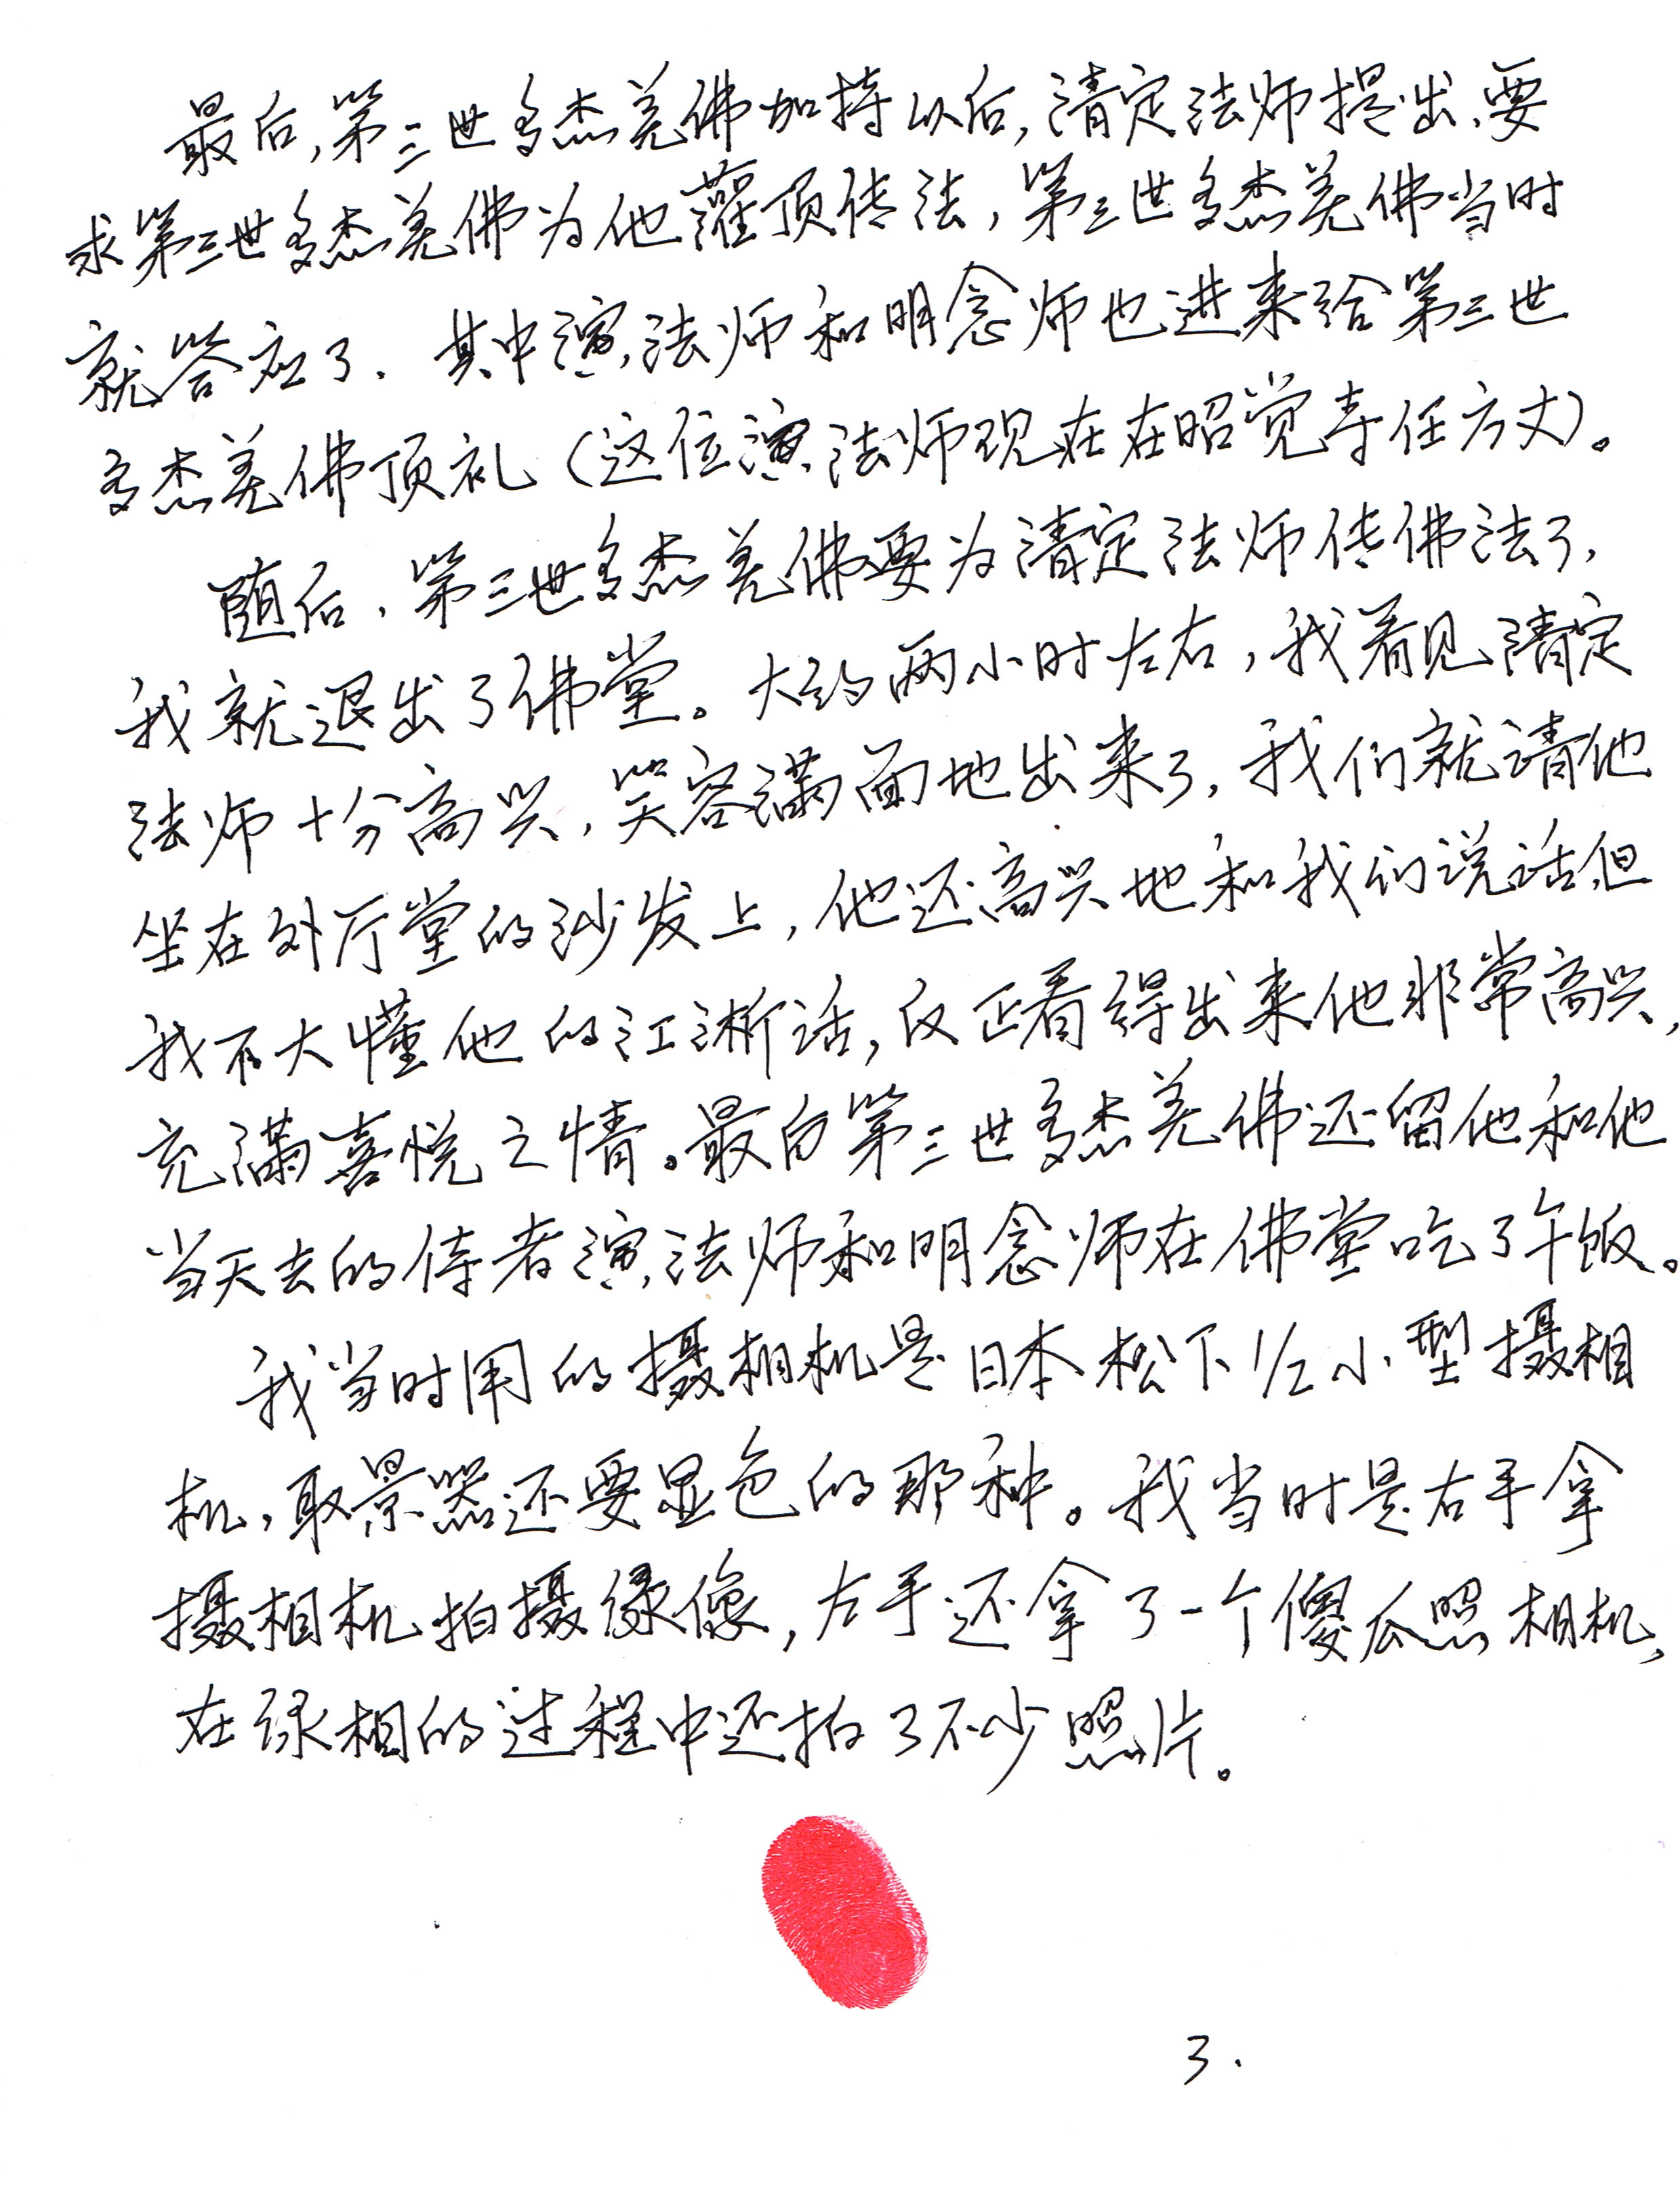 最后,第三世多杰羌佛加持以后,清定法师提出,要
求第三世多杰羌佛为他灌顶传法,第三世多杰羌佛当时
就答应了.其中演法师和明念师也进来给第三世
多杰羌佛顶礼(这位演法师现在在昭觉寺任方丈)。
随后.第三世多杰羌佛要为清定法师传佛法了,
我就退出了佛堂。大约两小时左右,我看见清定
法师十分高兴,笑容满面地出来了,我们就请他
坐在外厅堂的沙发上,他还高兴地和我们说话,但
我不大懂他的江淅话,仅止看得出来他非常高兴,
充满喜悦之情。最后第三世多杰羌佛还留他和他
当天去的侍者演法师和明念师在佛堂吃了午饭。
我当时用的摄相机是日本松下1/2小型摄相
机,取景器还要显色的那种。我当时是右手拿
摄相机拍摄录像,左手还拿了一个傻瓜照相机,
在录相的过程中还拍了不少照片。
3.